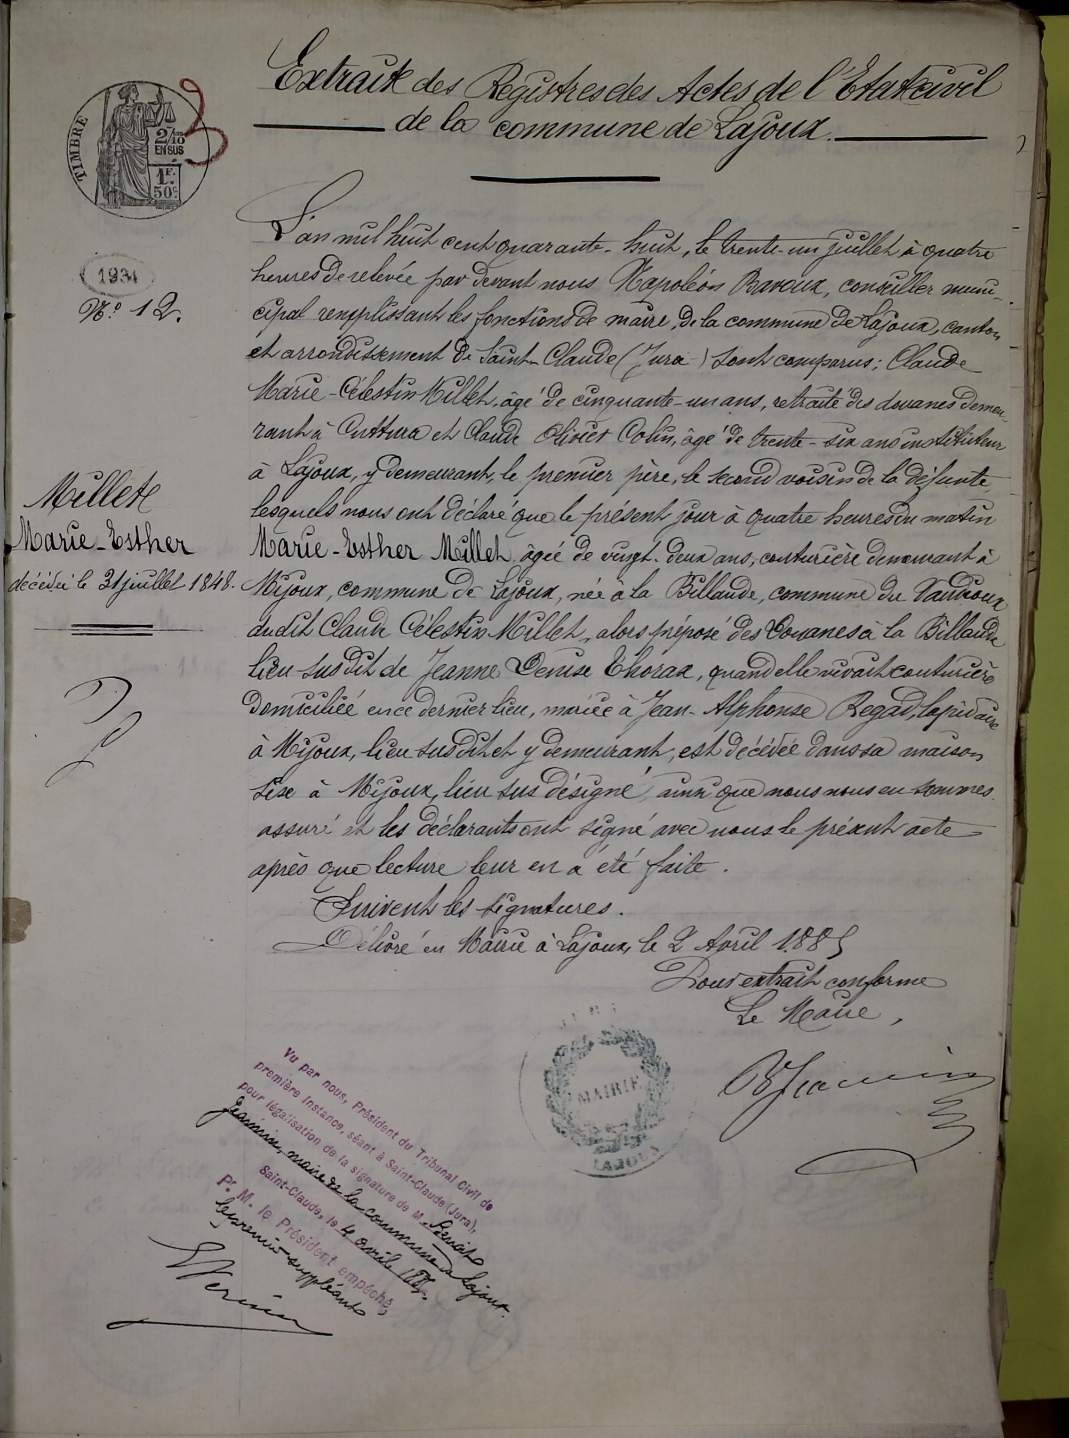 Extrait des Registres des Actes de l'Etat civil
de la commune de Lajoux.
TIMBRE
2/10
EN SUS
1F.
50c
1931
N.º 12.
L'an mil huit cent quarante-huit, le trente-un juillet à quatre
heures de relevée par devant nous Napoléon Bavoux, conseiller muni-
cipal remplissant les fonctions de maire, de la commune de Lajoux, canton
et arrondissement de Saint-Claude (Jura) sont comparus; Claude
Marie-Célestin Millet, âgé de cinquante-un ans, retraité des douanes demeu-
rant à Cuttura et Claude Olivier Colin, âgé de trente-six ans instituteur
à Lajoux, y demeurant, le premier père, le second voisin de la défunte,
lesquels nous ont déclaré que le présent jour à quatre heures du matin
Marie-Esther Millet, âgée de vingt-deux ans, couturière demeurant à
Mijoux, commune de Lajoux, née à la Billaude, commune du Vaudioux
dudit Claude Célestin Millet, alors préposé des Douanes à la Billaude
lieu susdit de Jeanne Denise Thorax, quand elle vivait couturière
domiciliée en ce dernier lieu, mariée à Jean-Alphonse Regad, lapidaire
à Mijoux, lieu susdit et y demeurant, est décédée dans sa maison
sise à Mijoux, lieu sus désigné, ainsi que nous nous en sommes
assuré et les déclarants ont signé avec nous le présent acte
après que lecture leur en a été faite.
Suivent les signatures.
Délivré en Mairie à Lajoux, le 2 Avril 1885
Pour extrait conforme
Le Maire,
Millet
Marie-Esther
décédée le 31 juillet 1848.
MAIRIE
LAJOUX
Vu par nous, Président du Tribunal Civil de
première Instance, séant à Saint-Claude (Jura),
pour légalisation de la signature de M. Benoit
Jeannin, maire de la commune de Lajoux.
Saint-Claude, le 4 avril 1885.
Pr M. le Président empêché,
le premier suppléant